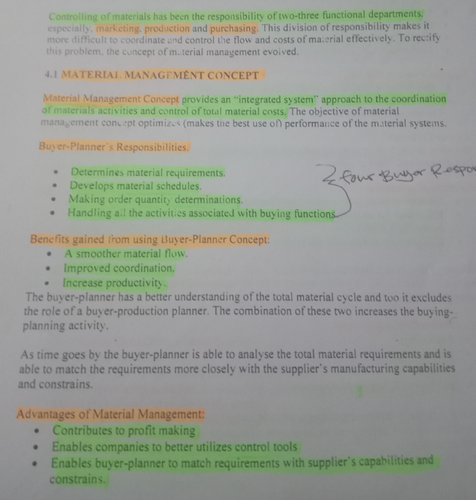 Controlling of materials has been the responsibility of two-three functional departments,
especially, marketing, production and purchasing. This division of responsibility makes it
more difficult to coordinate and control the flow and costs of material effectively. To rectify
this problem, the concept of material management evolved.
4.1 MATERIAL MANAGEMENT CONCEPT
Material Management Concept provides an "integrated system" approach to the coordination
of materials activities and control of total material costs. The objective of material
management concept optimizes (makes the best use of) performance of the material systems.
Buyer-Planner's Responsibilities:
• Determines material requirements.
• Develops material schedules.
• Making order quantity determinations.
• Handling all the activities associated with buying functions
four Buyer Respon
Benefits gained from using Buyer-Planner Concept:
• A smoother material flow.
• Improved coordination.
• Increase productivity.
The buyer-planner has a better understanding of the total material cycle and too it excludes
the role of a buyer-production planner. The combination of these two increases the buying-
planning activity.
As time goes by the buyer-planner is able to analyse the total material requirements and is
able to match the requirements more closely with the supplier's manufacturing capabilities
and constrains.
Advantages of Material Management:
• Contributes to profit making
• Enables companies to better utilizes control tools
• Enables buyer-planner to match requirements with supplier's capabilities and
constrains.